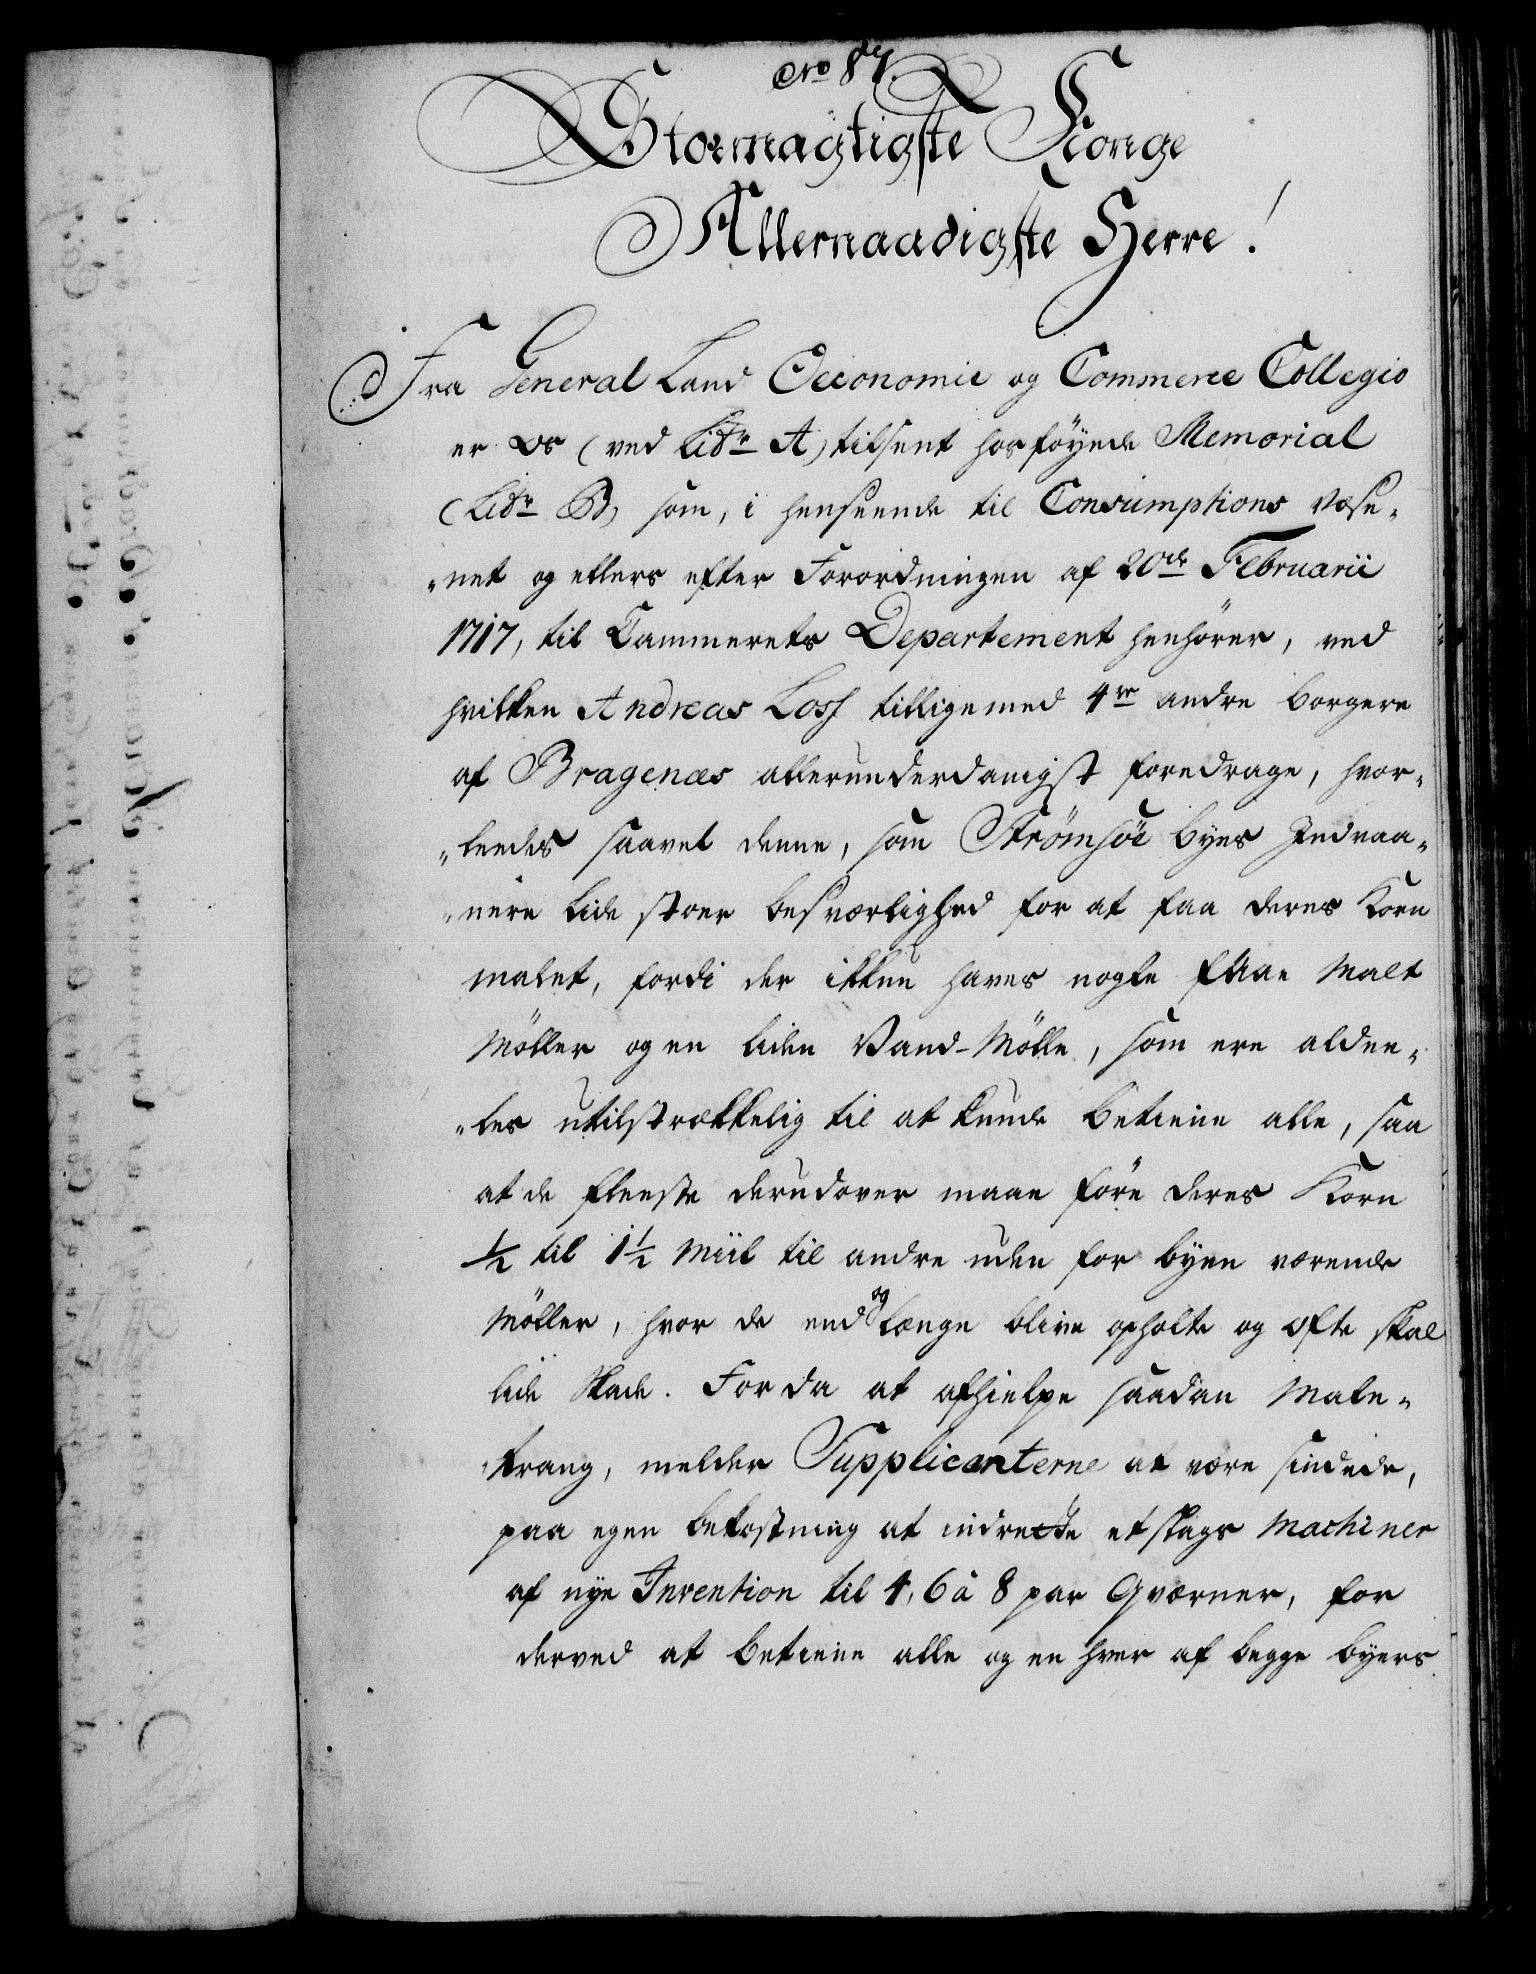 No 87.
Stormægtigste Konge
Allernaadigste Herre!
Fra General Land Oeconomie og Commerce Collegio
er os (ved Litr A) tilsent hosföyede Memorial
(Litr B) som, i henseende til Consumptions Væse-
-net og ellers efter Forordningen af 20de Februarii
1717, til Cammerets Departement henhörer, ved
hvilken Andreas Loss tilligemed 4re andre borgere
af Bragenæs allerunderdanigst foredrage, hvor-
-leedes saavel denne, som Strömsöe byes Indvaa-
-nere lide stoer besværlighed for at faa deres Korn
malet, fordi der ikkun haves nogle faae Malt
Möller og en liden Vand-Mölle, som ere aldee-
-les utilstrækkelig til at kunde betiene alle, saa
at de fleeste derudover maae före deres Korn
1/2 til 1 1/2 Miil til andre uden for byen værende
Möller, hvor de end og længe blive opholte og ofte skal
lide Skade. For da at afhielpe saadan Male-
-trang, melder Supplicanterne at være sindede,
paa egen bekostning at indrette et slags Machiner
af nye Invention til 4, 6 à 8 par Qværner, for
derved at betiene alle og en hver af begge byers